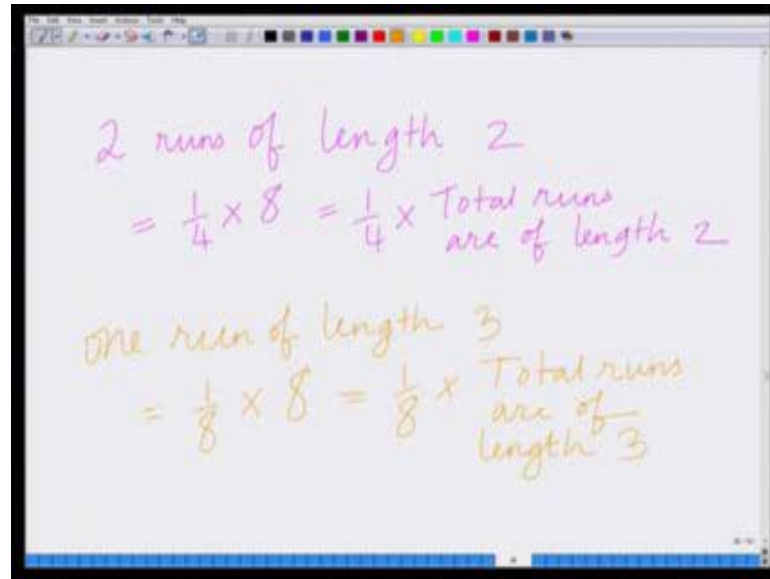 File Edit View Insert Actions Tools Help
2 runs of length 2
= 1/4 × 8 = 1/4 × Total runs
are of length 2
one run of length 3
= 1/8 × 8 = 1/8 × Total runs
are of
length 3